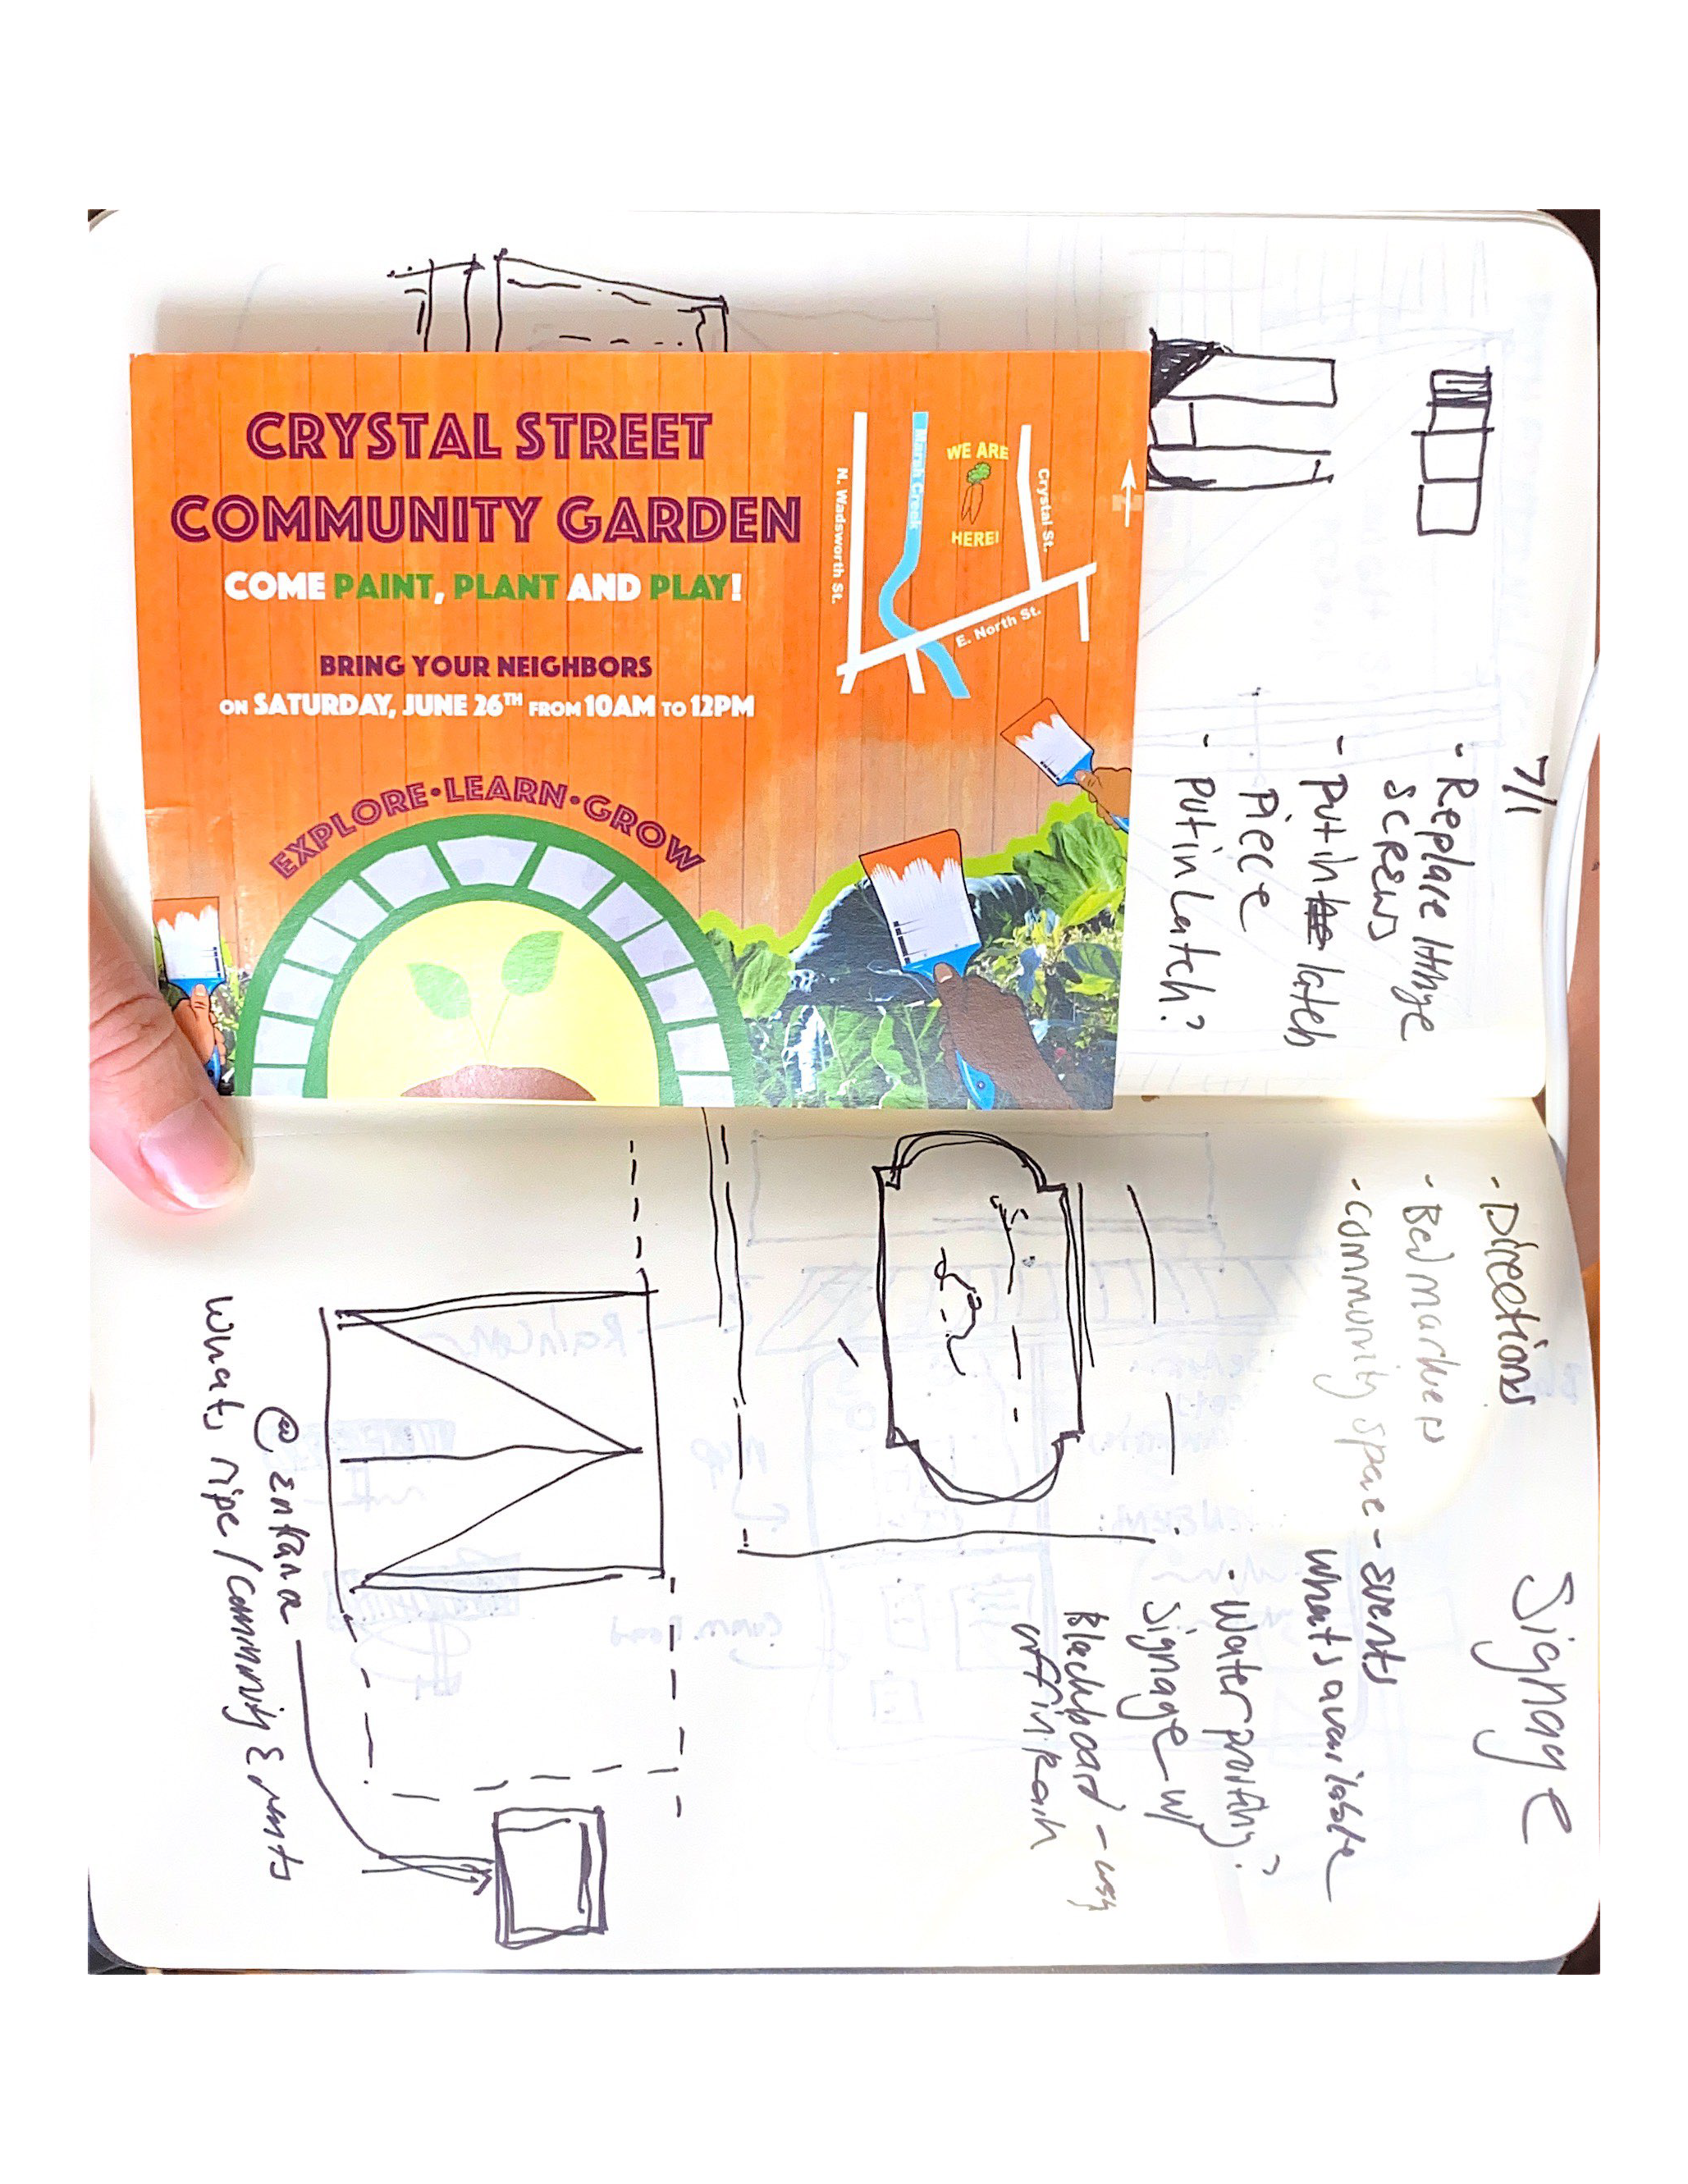 CRYSTAL STREET
COMMUNITY GARDEN
COME PAINT, PLANT AND PLAY!
BRING YOUR NEIGHBORS
ON SATURDAY, JUNE 26TH FROM 10AM TO 12PM
EXPLORE•LEARN•GROW
N. Wadsworth St.
Marsh Creek
WE ARE
HERE!
Crystal St.
E. North St.
N
7/1
- Replace Hinge
screws
- Put in latch
Piece
- Put in Latch?
Signage
- Directions
- Bed markers
- community space - events
whats available
- Waterproofing?
Signage w/
Blackboard -
@ Entrance
Whats ripe / community Events